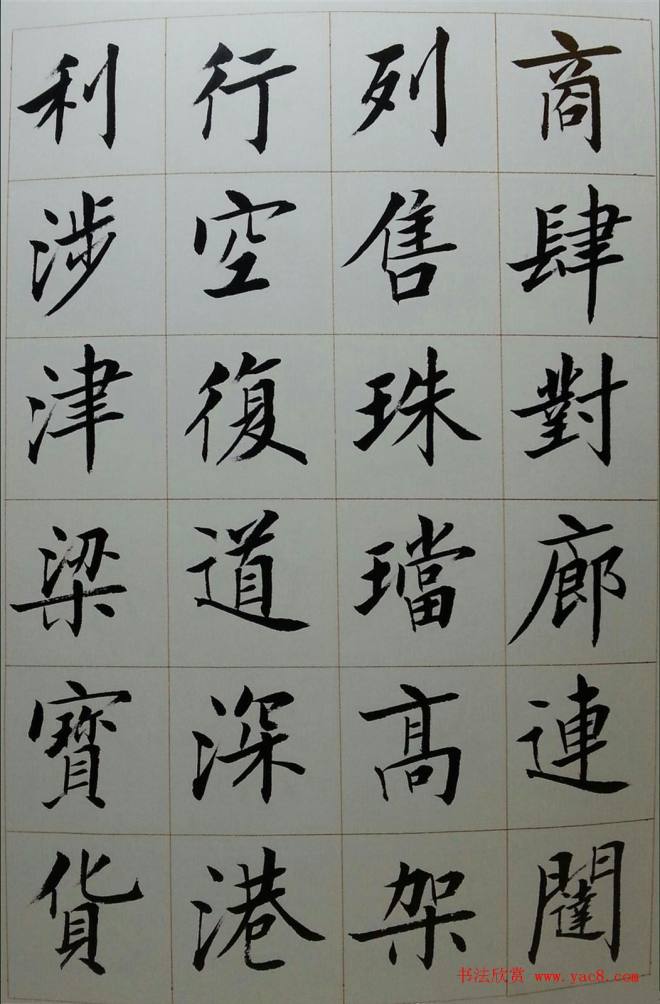 商肆對廊連闥
列售珠璫高架
行空復道深港
利涉津梁寶貨
书法欣赏 www.yac8.com